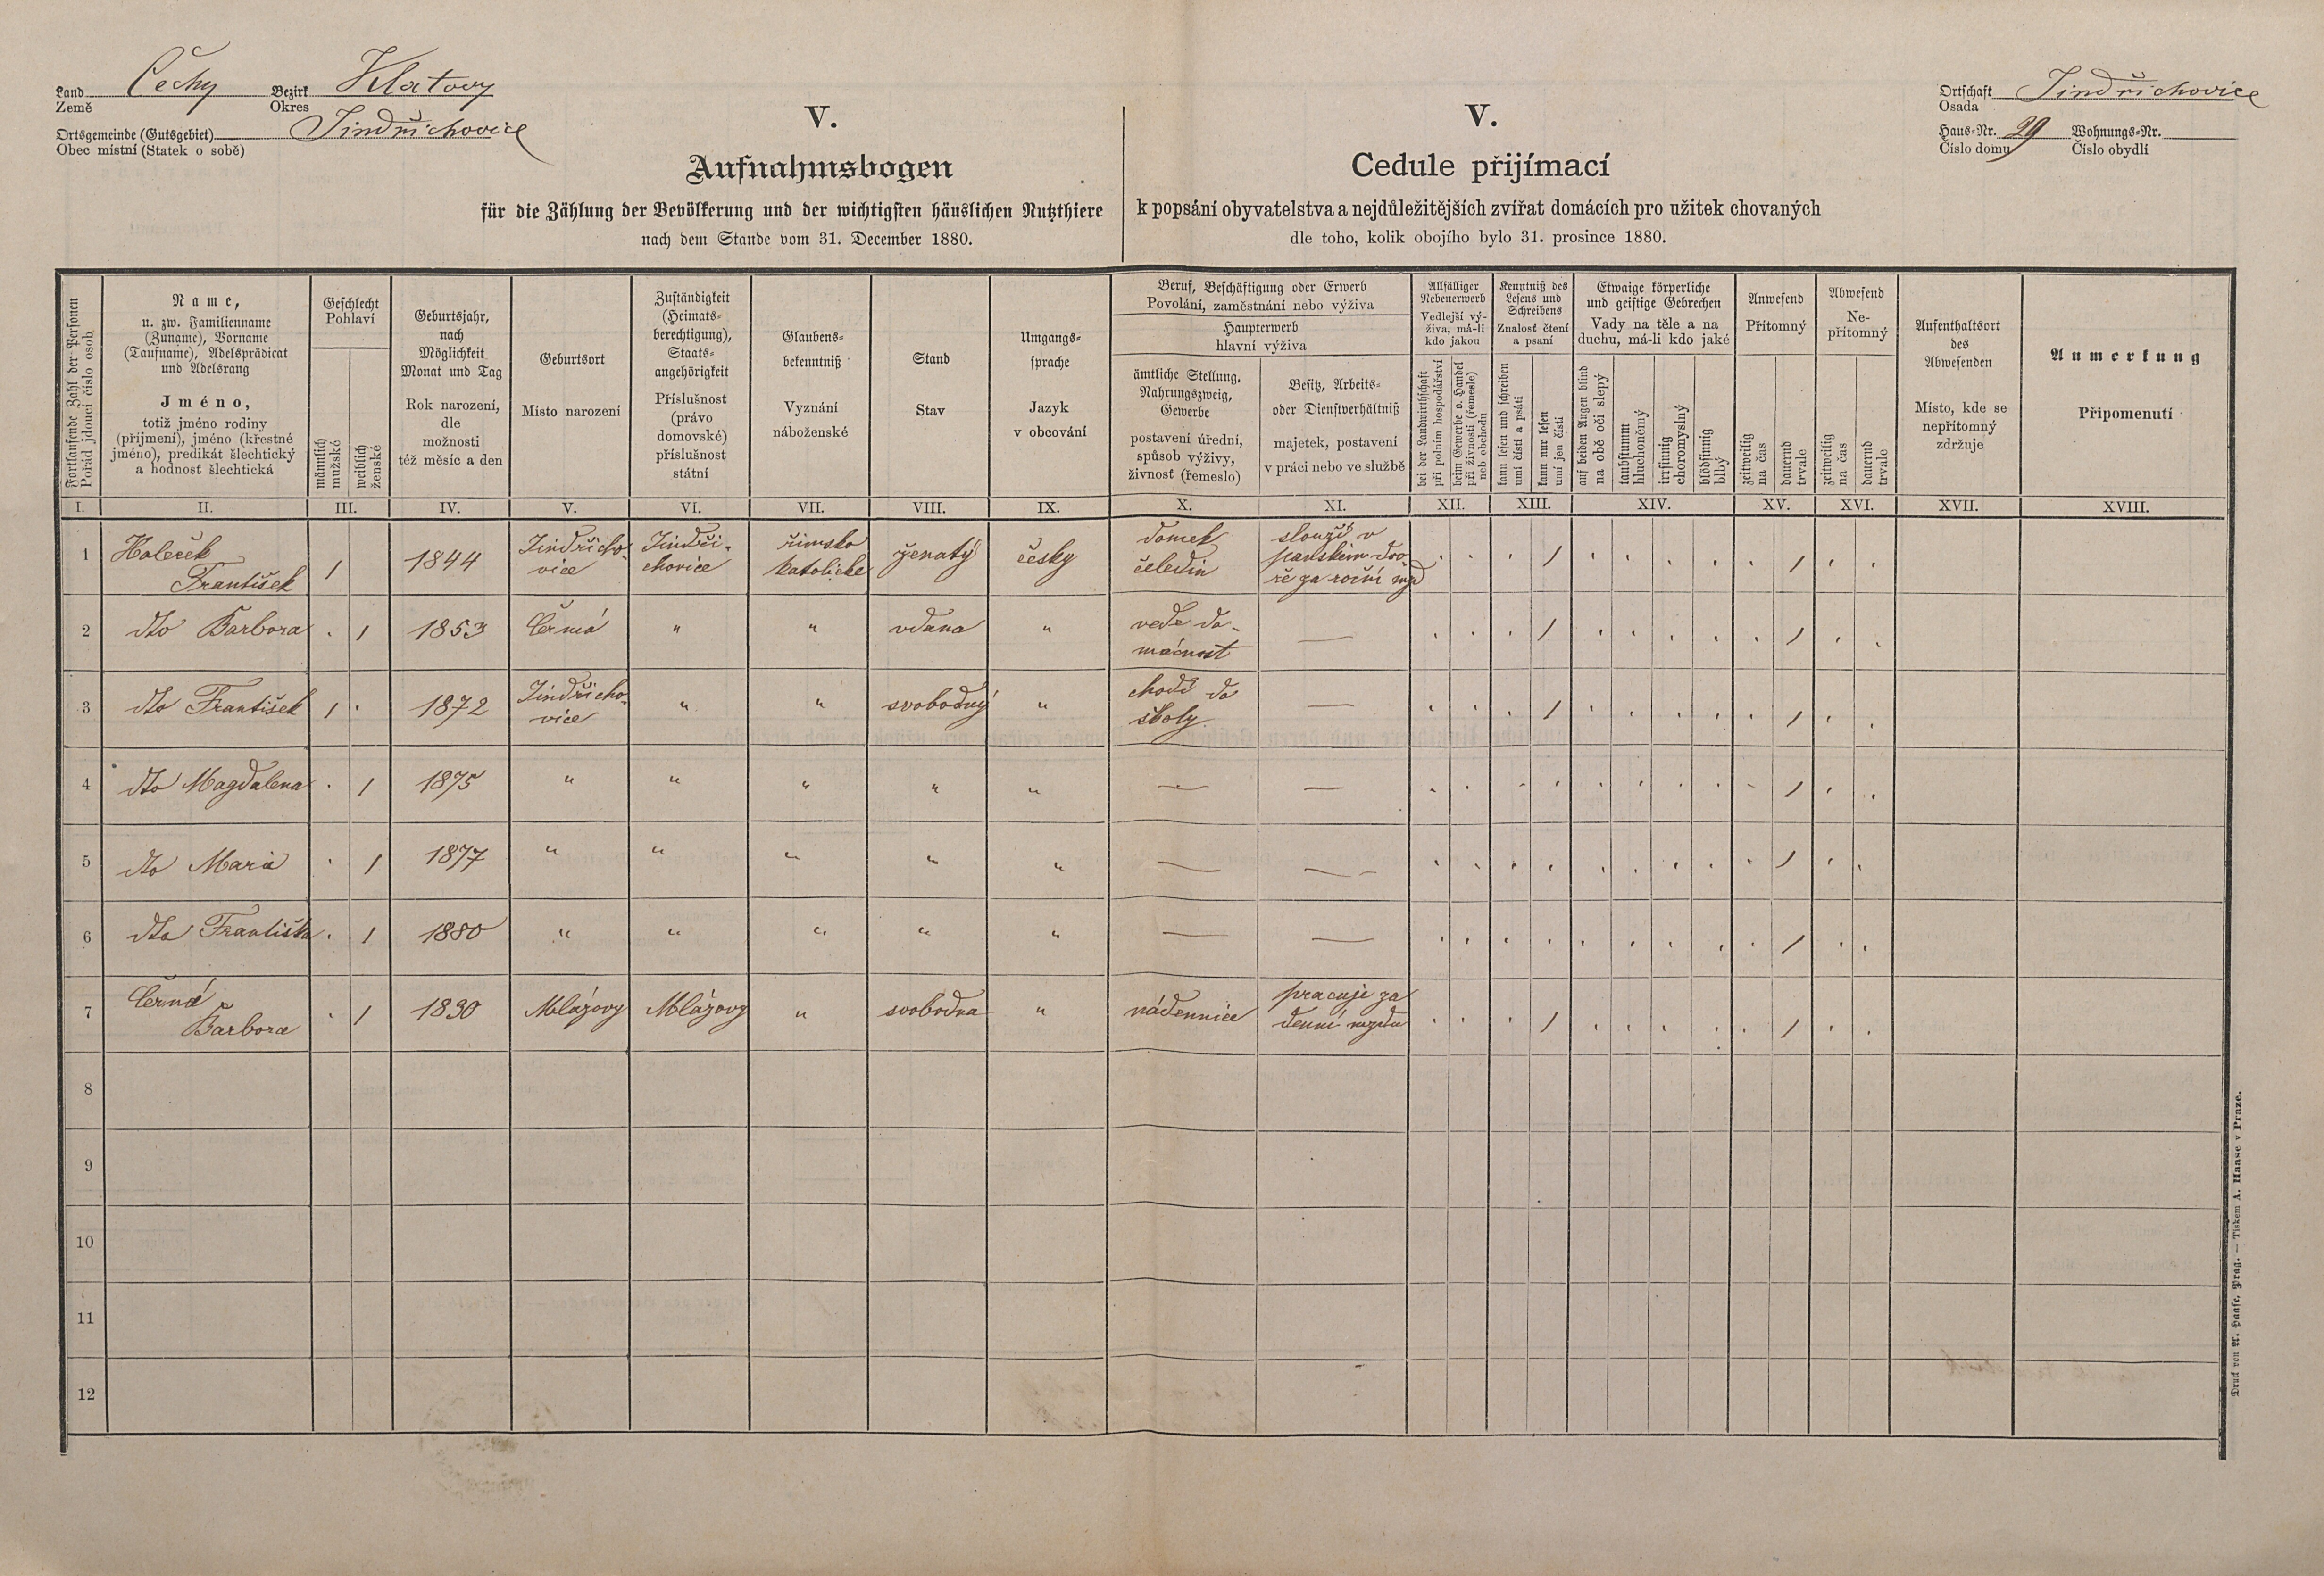 Land Čechy Bezirk Klatovy
Země Okres
Ortsgemeinde (Gutsgebiet) Jindřichovice
Obec místní (Statek o sobě)
V.
Aufnahmsbogen
für die Zählung der Bevölkerung und der wichtigsten häuslichen Nutzthiere
nach dem Stande vom 31. December 1880.
V.
Cedule přijímací
k popsání obyvatelstva a nejdůležitějších zvířat domácích pro užitek chovaných
dle toho, kolik obojího bylo 31. prosince 1880.
Ortschaft Jindřichovice
Osada
Haus-Nr. 29 Wohnungs-Nr.
Číslo domu Číslo obydlí
Fortlaufende Zahl der Personen
Pořád jdoucí číslo osob
Name,
u. zw. Familienname
(Zuname), Vorname
(Taufname), Adelsprädicat
und Adelsrang
Jméno,
totiž jméno rodiny
(příjmení), jméno (křestné
jméno), predikát šlechtický
a hodnosť šlechtická
Geschlecht
Pohlaví
männlich
mužské
weiblich
ženské
Geburtsjahr,
nach
Möglichkeit
Monat und Tag
Rok narození,
dle
možnosti
též měsíc a den
Geburtsort
Místo narození
Zuständigkeit
(Heimats-
berechtigung),
Staats-
angehörigkeit
Příslušnost
(právo
domovské)
příslušnost
státní
Glaubens-
bekenntniß
Vyznání
náboženské
Stand
Stav
Umgangs-
sprache
Jazyk
v obcování
Beruf, Beschäftigung oder Erwerb
Povolání, zaměstnání nebo výživa
Haupterwerb
hlavní výživa
ämtliche Stellung,
Nahrungszweig,
Gewerbe
postavení úřední,
spůsob výživy,
živnosť (řemeslo)
Besitz, Arbeits-
oder Dienstverhältniß
majetek, postavení
v práci nebo ve službě
Allfälliger
Nebenerwerb
Vedlejší vý-
živa, má-li
kdo jakou
bei der Landwirthschaft
při polním hospodářství
beim Gewerbe o. Handel
při živnosti (řemesle)
neb obchodu
Kenntniß des
Lesens und
Schreibens
Znalosť čtení
a psaní
kann lesen und schreiben
umí čísti a psáti
kann nur lesen
umí jen čísti
Etwaige körperliche
und geistige Gebrechen
Vady na těle a na
duchu, má-li kdo jaké
auf beiden Augen blind
na obě oči slepý
taubstumm
hluchoněmý
irrsinnig
choromyslný
blödsinnig
blbý
Anwesend
Přítomný
zeitweilig
na čas
dauernd
trvale
Abwesend
Ne-
přítomný
zeitweilig
na čas
dauernd
trvale
Aufenthaltsort
des
Abwesenden
Místo, kde se
nepřítomný
zdržuje
Anmerkung
Připomenutí
I. II. III. IV. V. VI. VII. VIII. IX. X. XI. XII. XIII. XIV. XV. XVI. XVII. XVIII.
1 Holeček František 1 1844 Jindřichovice Jindřichovice římsko katolické ženatý česky domek čeledín slouží v panském dvoře za roční mzd 1 1
2 dto Barbora 1 1853 Černá " " vdana " vede domácnost — 1 1
3 dto František 1 1872 Jindřichovice " " svobodný " chodí do školy — 1 1
4 dto Magdalena 1 1875 " " " " " — — 1
5 dto Marie 1 1877 " " " " " — — 1
6 dto Františka 1 1880 " " " " " — — 1
7 Černá Barbora 1 1830 Mlázovy Mlázovy " svobodna " nádennice pracuje za denní mzdu 1 1
8
9
10
11
12
Druck von A. Haase, Prag. — Tiskem A. Haase v Praze.